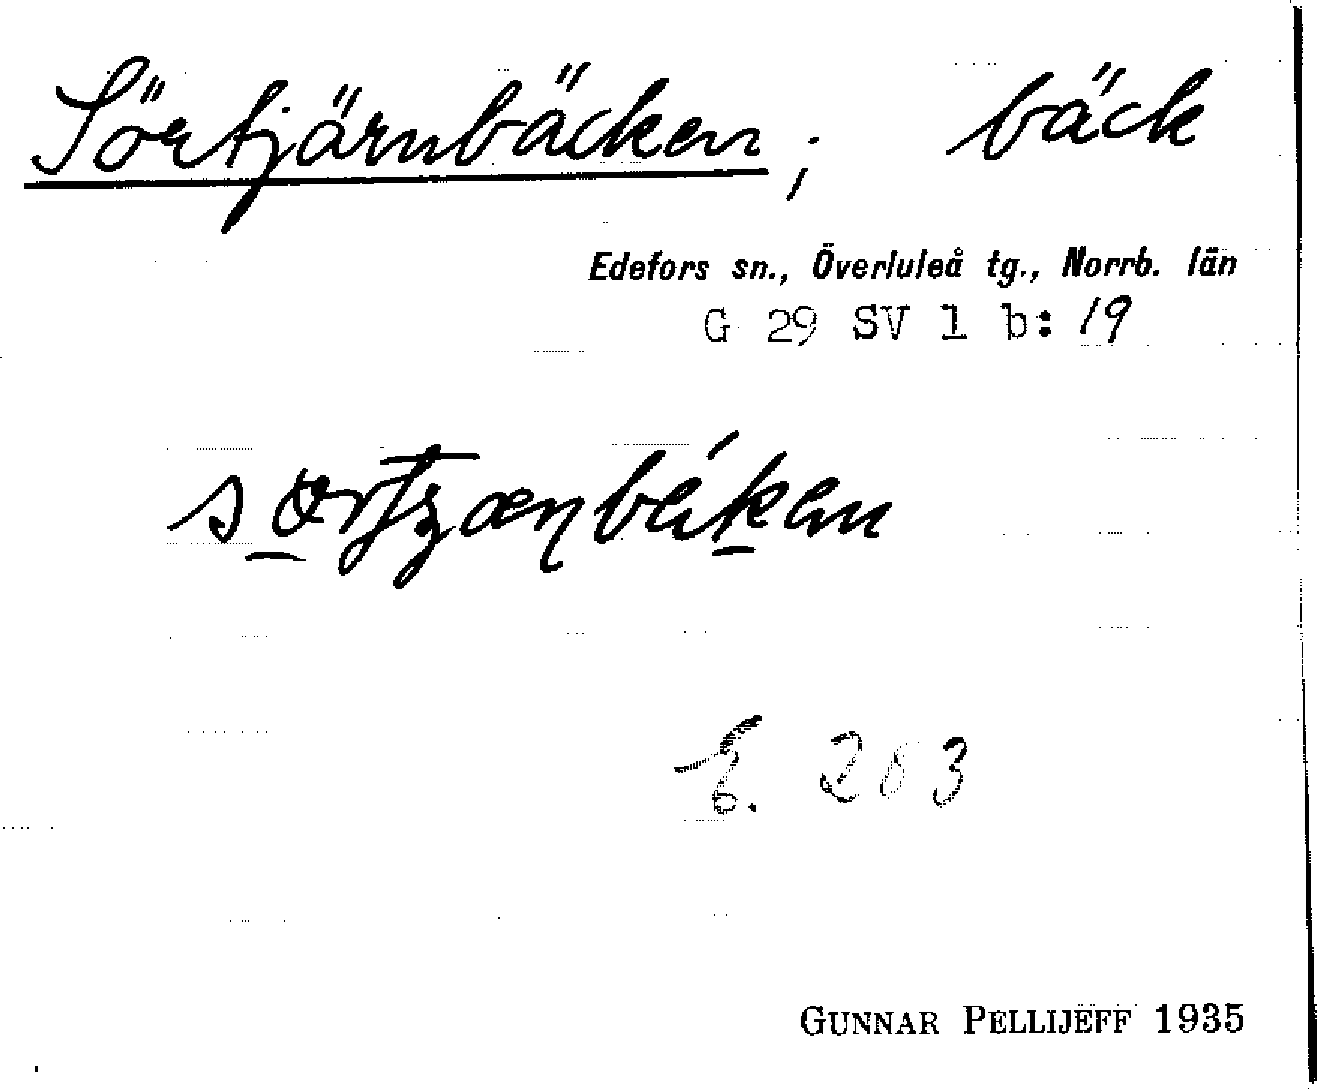 Sörtjärnbäcken; bäck
Edefors sn., Överluleå tg., Norrb. län
G 29 SV 1 b: 19
E. 203
GUNNAR PELLIJEFF 1935